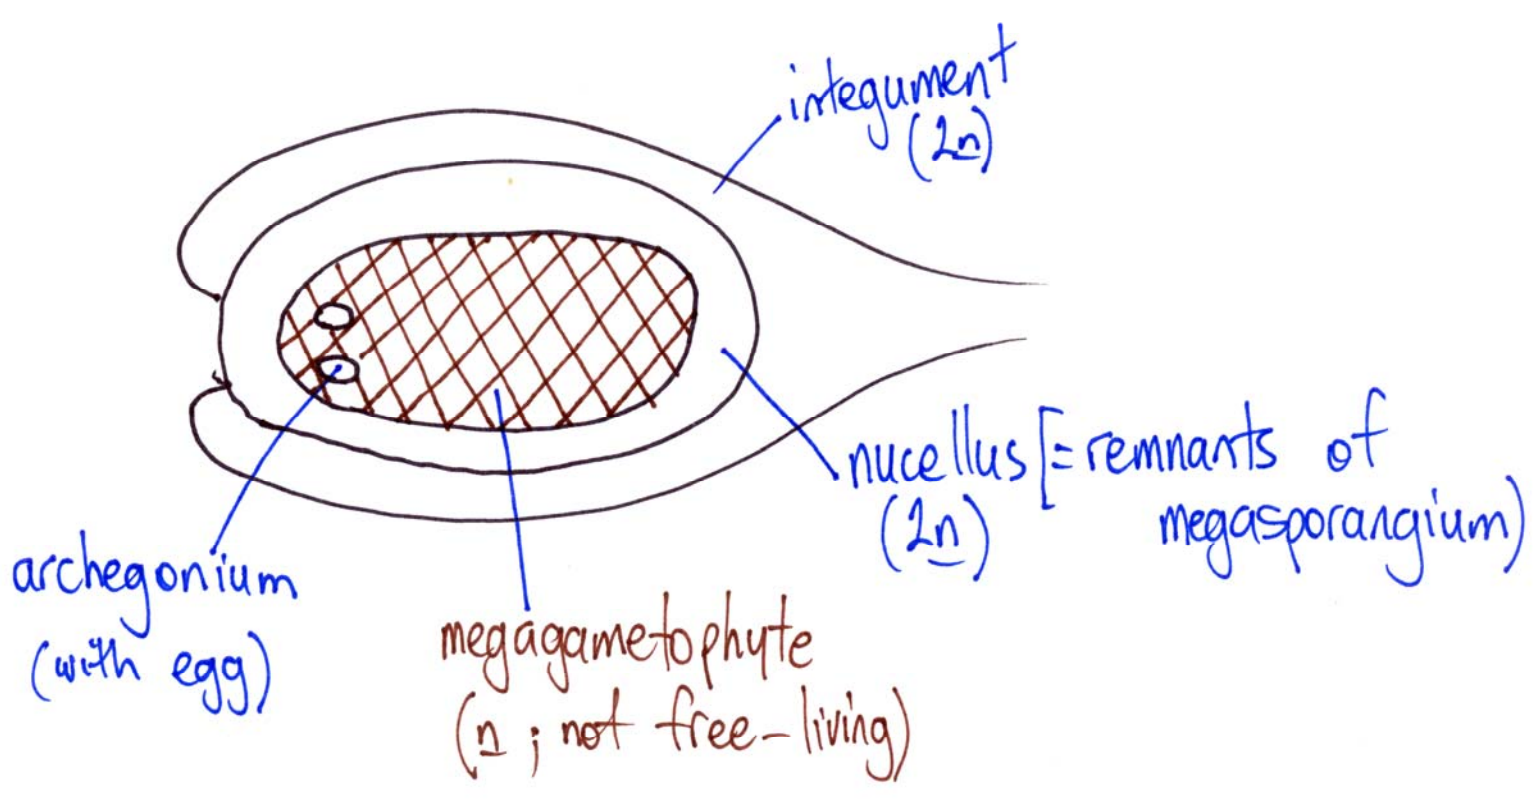 integument
(2n)
nucellus [= remnants of
(2n)
megasporangium)
archegonium
(with egg)
megagametophyte
(n ; not free-living)